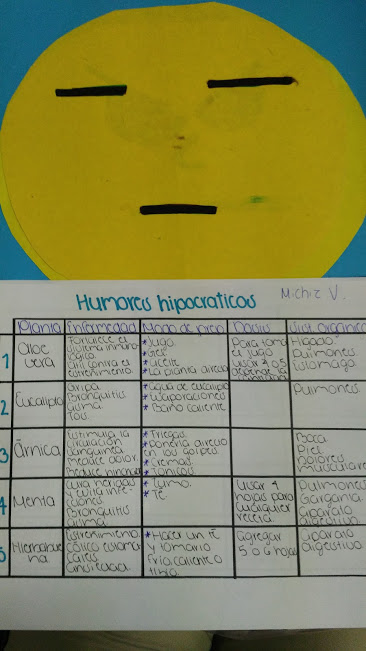 Humores hipocraticos
Michiz V.
Planta
Enfermedad
Modo de prep
Dosis
Sist. orgánico
1
aloe
vera
Fortalece el
sistema inmuno
lógico
util contra el
estreñimiento.
*Jugo
*Gel
*Aceite
*La planta directa
Para tomar
el jugo
usar 2 o 5
depende la
Hígado
Pulmones
Estomago.
2
Eucalipto
Gripa
Bronquitis
Asma
Tos.
*Agua de eucalipto
*Evaporaciones
*Baño caliente
Pulmones
3
Árnica
Estimula la
circulación
sanguinea
*Friegas
*Ponerla directo
en los golpes
*Cremas
*Tonicos
Boca
Piel
Dolores
musculares
4
Menta
Cura heridas
y cura infe-
cciones
Bronquitis
Asma
*Té
usar 4
hojas para
cualquier
receta.
Pulmones
Garganta
aparato
digestivo
5
Hierbabue
na
Estreñimiento
cólico estoma
cales
ansiedad
*Hacer un té
y tomarlo
fria, caliente o
tibia.
Agregar
5 o 6 hojas
aparato
digestivo